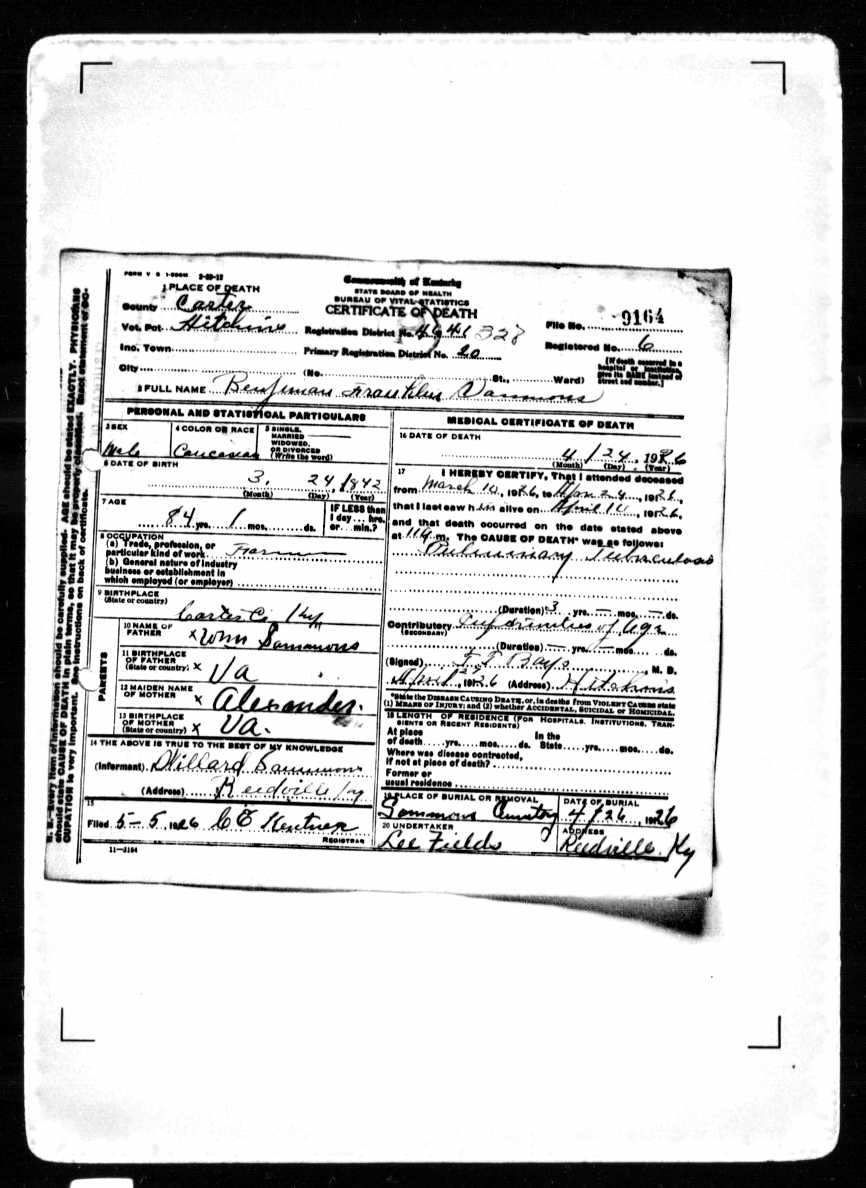 FORM V S 1-500M 3-20-12
1 PLACE OF DEATH
County Carter
Vot. Pct. Hitchins
Inc. Town
City (No. St., Ward)
Commonwealth of Kentucky
STATE BOARD OF HEALTH
BUREAU OF VITAL STATISTICS
CERTIFICATE OF DEATH
Registration District No. 328
Primary Registration District No.
File No. 9164
Registered No. 6
[If death occurred in a hospital or institution, give its NAME instead of street and number.]
2 FULL NAME Benjiman Franklin Sammons
PERSONAL AND STATISTICAL PARTICULARS
3 SEX
Male
4 COLOR OR RACE
Caucasian
5 SINGLE,
MARRIED
WIDOWED,
OR DIVORCED
(Write the word)
6 DATE OF BIRTH
3, 24, 1842
(Month) (Day) (Year)
7 AGE
84 yrs. 1 mos. ds.
IF LESS than
1 day ... hrs.
or ... min.?
8 OCCUPATION
(a) Trade, profession, or
particular kind of work Farmer
(b) General nature of industry
business or establishment in
which employed (or employer)
9 BIRTHPLACE
(State or country)
Carter Co Ky
PARENTS
10 NAME OF
FATHER x Wm Sammons
11 BIRTHPLACE
OF FATHER
(State or country) x Va
12 MAIDEN NAME
OF MOTHER x Alexander.
13 BIRTHPLACE
OF MOTHER
(State or country) x Va.
14 THE ABOVE IS TRUE TO THE BEST OF MY KNOWLEDGE
(Informant) Willard Sammons
(Address) Reedville Ky
15
Filed 5-5, 1926 C E
REGISTRAR
11-3184
MEDICAL CERTIFICATE OF DEATH
16 DATE OF DEATH
4 / 24, 1926
(Month) (Day) (Year)
17 I HEREBY CERTIFY, That I attended deceased
from March 10, 1926, to Apr 24, 1926,
that I last saw him alive on April 14, 1926,
and that death occurred on the date stated above
at m. The CAUSE OF DEATH* was as follows:
Pulmonary Tuberculosis
(Duration) 3 yrs. — mos. — ds.
Contributory Infirmities of Age
(SECONDARY)
(Duration) — yrs. — mos. ds.
(Signed) Bays, M. D.
1926 (Address) Hitchins
*State the DISEASE CAUSING DEATH, or, in deaths from VIOLENT CAUSES state
(1) MEANS OF INJURY; and (2) whether ACCIDENTAL, SUICIDAL or HOMICIDAL.
18 LENGTH OF RESIDENCE (FOR HOSPITALS, INSTITUTIONS, TRANSIENTS OR RECENT RESIDENTS)
At place In the
of death yrs. mos. ds. State yrs. mos. ds.
Where was disease contracted,
if not at place of death?
Former or
usual residence
19 PLACE OF BURIAL OR REMOVAL
Sammons Cemetery
DATE OF BURIAL
4/26, 1926
20 UNDERTAKER
Lee Fields
ADDRESS
Reedville, Ky
N. B.—Every item of information should be carefully supplied. AGE should be stated EXACTLY. PHYSICIANS
should state CAUSE OF DEATH in plain terms, so that it may be properly classified. Exact statement of OC-
CUPATION is very important. See instructions on back of certificate.